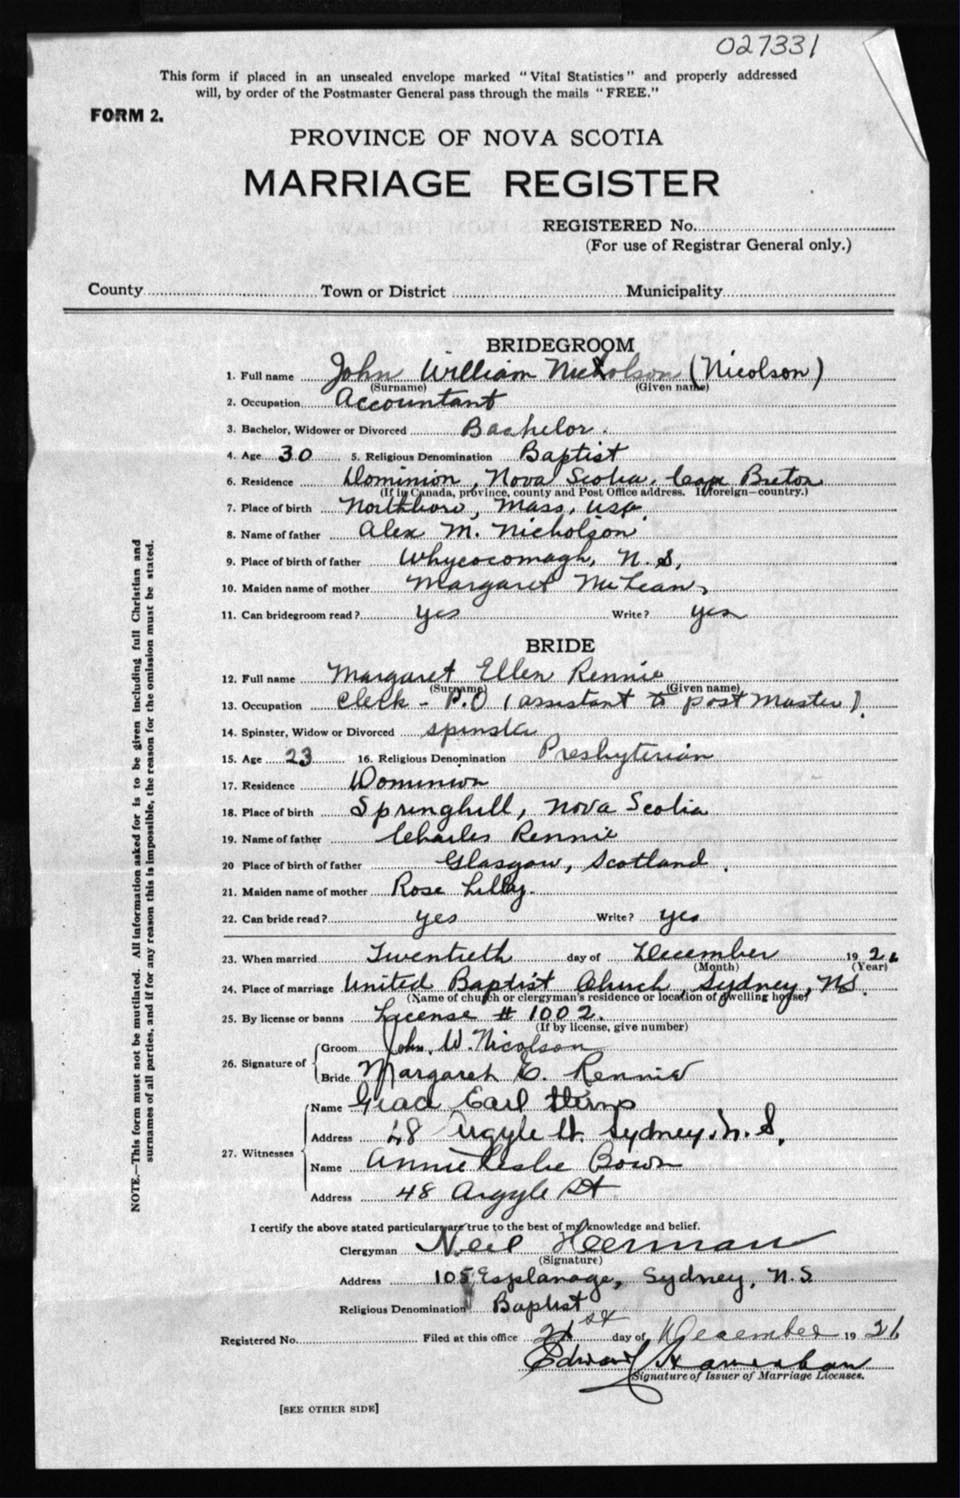 027331
This form if placed in an unsealed envelope marked "Vital Statistics" and properly addressed
will, by order of the Postmaster General pass through the mails "FREE."
FORM 2.
PROVINCE OF NOVA SCOTIA
MARRIAGE REGISTER
REGISTERED No.
(For use of Registrar General only.)
County Town or District Municipality
BRIDEGROOM
1. Full name John William Nicholson (Nicolson)
(Surname) (Given name)
2. Occupation Accountant
3. Bachelor, Widower or Divorced Bachelor.
4. Age 30 5. Religious Denomination Baptist
6. Residence Dominion, Nova Scotia, Cape Breton
(If in Canada, province, county and Post Office address. If foreign—country.)
7. Place of birth Northboro, Mass, USA.
8. Name of father Alex M. Nicholson
9. Place of birth of father Whycocomagh, N.S,
10. Maiden name of mother Margaret McLean,
11. Can bridegroom read? yes Write? yes
BRIDE
12. Full name Margaret Ellen Rennie
(Surname) (Given name)
13. Occupation Clerk - P.O (assistant to post Master).
14. Spinster, Widow or Divorced spinster
15. Age 23 16. Religious Denomination Presbyterian
17. Residence Dominion
18. Place of birth Springhill, Nova Scotia
19. Name of father Charles Rennie
20 Place of birth of father Glasgow, Scotland.
21. Maiden name of mother Rose Lilly.
22. Can bride read? yes Write? yes
23. When married Twentieth day of December 1926
(Month) (Year)
24. Place of marriage United Baptist Church, Sydney, N.S.
(Name of church or clergyman's residence or location of dwelling house)
25. By license or banns License # 1002.
(If by license, give number)
26. Signature of Groom John. W. Nicolson
Bride Margaret E. Rennie
27. Witnesses
Name Grace Earl
Address 48 Argyle St. Sydney. N. S.
Name Annie Leslie Bown
Address 48 Argyle St
I certify the above stated particulars are true to the best of my knowledge and belief.
Clergyman Neil Herman
(Signature)
Address 105 Esplanage, Sydney, N.S
Religious Denomination Baptist
Registered No. Filed at this office 21st day of December 1926
Edward
Signature of Issuer of Marriage Licenses.
[SEE OTHER SIDE]
NOTE.—This form must not be mutilated. All information asked for is to be given including full Christian and
surnames of all parties, and if for any reason this is impossible, the reason for the omission must be stated.